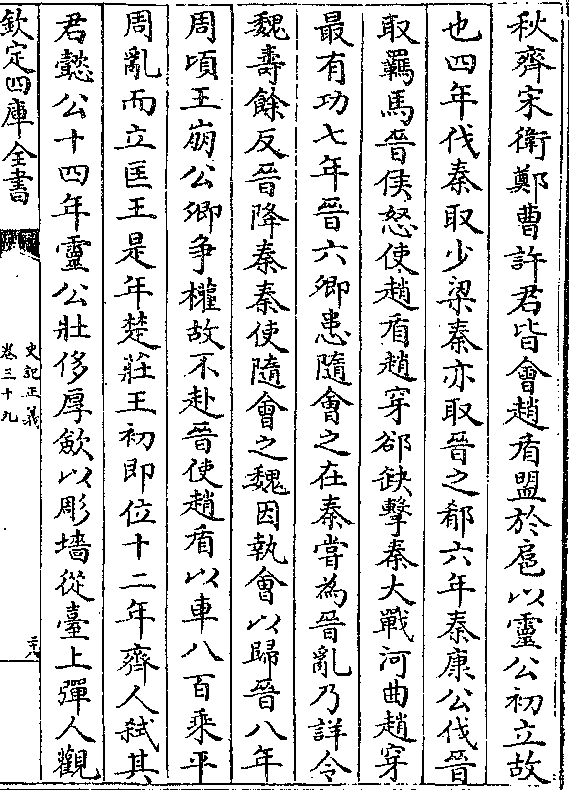 秋齊宋衛鄭曹許君皆會趙盾盟於扈以靈公初立故
也四年伐秦取少梁秦亦取晉之郩六年秦康公伐晉
取羈馬晉侯怒使趙盾趙穿郤缺擊秦大戰河曲趙穿
最有功七年晉六卿患隨會之在秦嘗為晉亂乃詳令
魏壽餘反晉降秦秦使隨會之魏因執會以歸晉八年
周頃王崩公卿爭權故不赴晉使趙盾以車八百乘平
周亂而立匡王是年楚莊王初即位十二年齊人弒其
君懿公十四年靈公壯侈厚斂以彫墻從臺上彈人觀
欽定四庫全書
史記正義
卷三十九
二十八